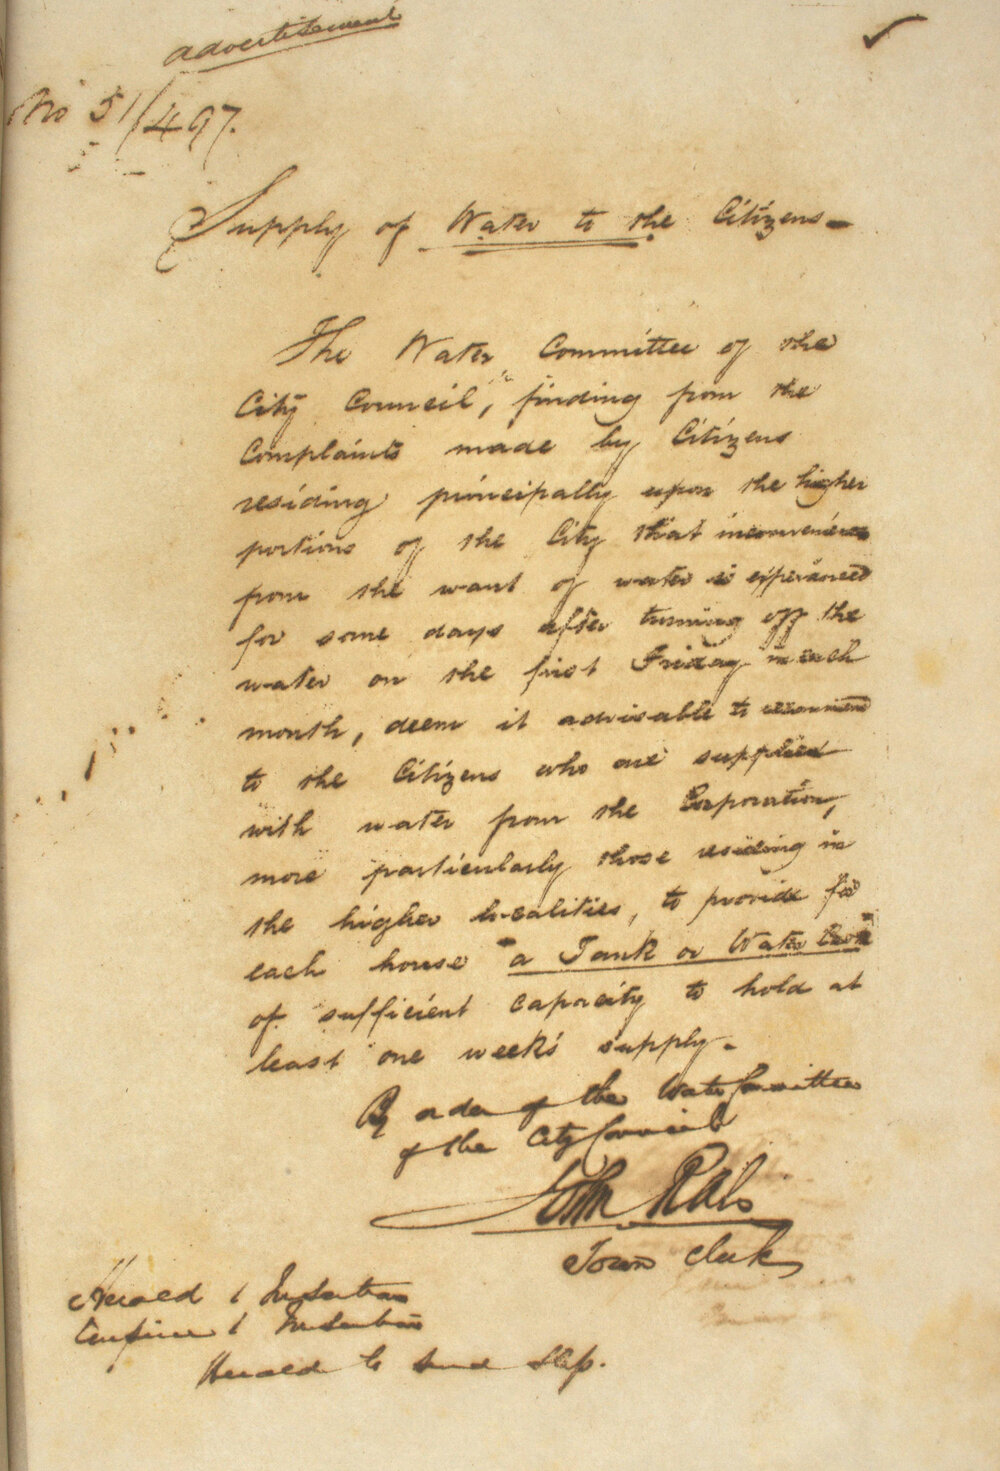 advertisement
No 51/497.
Supply of Water to the Citizens -
The Water Committee of the
City Council, finding from the
Complaints made by Citizens
residing principally upon the higher
portions of the City that inconvenience
from the want of water is experienced
for some days after turning off the
water on the first Friday in each
month, deem it advisable to recommend
to the Citizens who are supplied
with water from the Corporation,
more particularly those residing in
the higher localities, to provide for
each house "a Tank or Water Butt"
of sufficient capacity to hold at
least one week's supply.-
By order of the Water Committee
of the City Council
John Rae
Town Clerk
Herald 1 Insertion
Empire 1 Insertion
Herald to send slip.